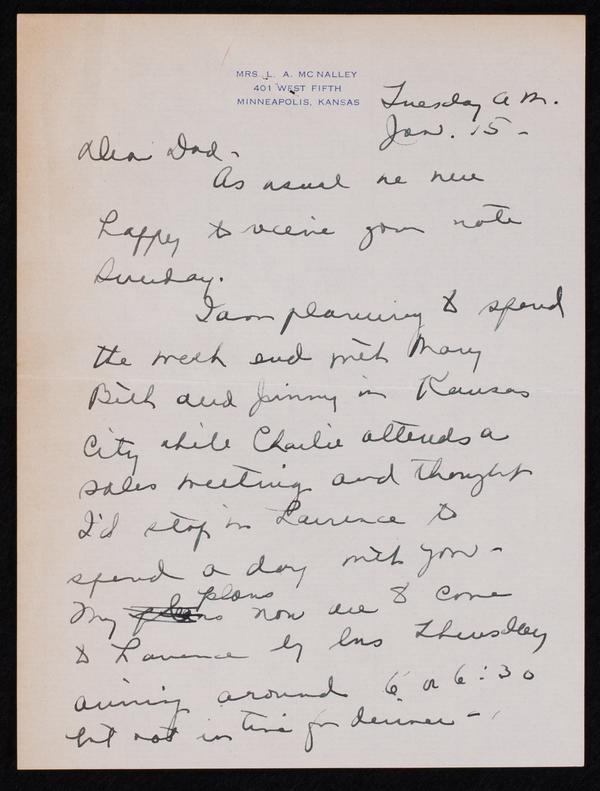 MRS. L. A. MC NALLEY
401 WEST FIFTH
MINNEAPOLIS, KANSAS
Tuesday A.M.
Jan. 15 -
Dear Dad -
As usual we were
happy to receive your note
Sunday.
I am planning to spend
the week end with Mary
Beth and Jimmy in Kansas
City while Charlie attends a
sales meeting and thought
I'd stop in Lawrence to
spend a day with you -
My plans now are to come
to Lawrence by bus Thursday
arriving around 6 or 6:30
but not in time for dinner -